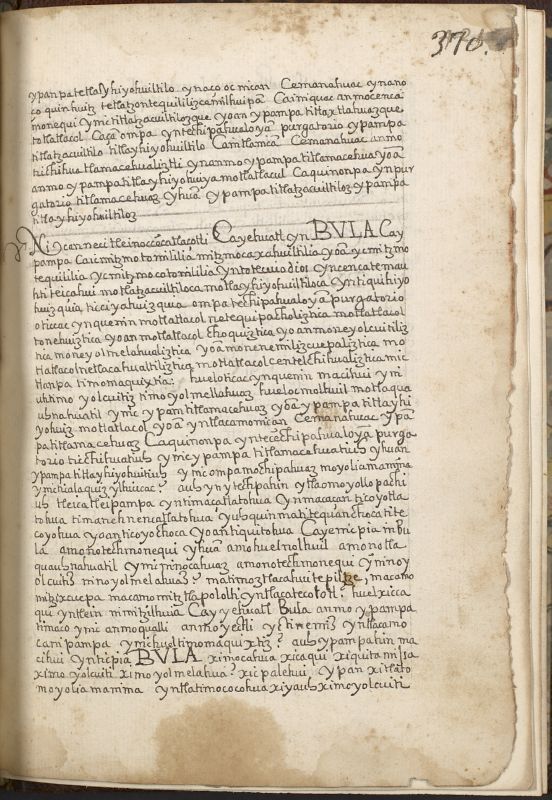 370.
ypanpatetlatlyhiyohuiltilo ynaco oc mican Cemanahuac ynano
co quinhuiz tetlatzontequililizcemilhuipa Caimiquac anmocenca
monequi ymictitlatzacuiltilozque yoan ypampa titlaxtlahuazque
totlatlacol Caça ompa yntechipahualoyã purgatorio ypampa
titlatzacuiltilo titlayhiyohuiltilo Camtlamicã Cemanahuac anmo
tlamacehualiztli ynanmo ypampatitlamacehua yoã
anmo ypampa titlayhiyohuiya motlatlacul Caquinonpa ynpur
gatorio titlamacehuaz yhuã ypampa titlatzacuiltiloz ypampa
titlayhiyohuiltiloz
Cayehuatl yn BULA Cay
pampa Caic mitzmotomililia mitzmocaxahuiltilia yoã ycmitzmo
tequililia ycmitzmocotomililia yntotecuiodios ynçencatemau
hti teicahui motlatzacuiltiloca motlayhiyohuiltiloca yntiquihiyo
huizquia ticciyahuizquia ompa techipahualoya purgatorio
oticcac ynquenin motlatlacol netequipacholiztica motlatlacol
tonehuiztica yoan motlatlacol choquiztica yoanmoneyolcuitiliz
tica moneyolmelahualiztica yoã monenemilizcuepaliztica mo
tlatlacolnetlacahualtiliztica motlatlacol centelchihualiztica mic
tlanpa timomaquixtia: hueloticac ynquenin macihui ymi
uhtimo yolcuitiz timoyolmellahuaz hueloc moltuil motlaqua
ubnahuatil ymic ypan titlamacehuaz yoã ypampa titlayhi
yohuiz motlatlacol yoã yntlacamo mican Cemanahuac ypã
patitlamacehuaz Caquinonpa yntecechipahualoyã purga
torio tichihuatiub ymic ypampa titlamacehuatiub yhuan
ypampa titlayhiyohuitiub ymic ompa mochipahuaz moyolia manima
ymichialaquiz ylhuicac? aub yn ytechpatzin ytlaomoyollo pachi
ub tleicatleipampa yntimacatlatohua ynmacacan ticoyotla
tohua timanehnencatlatohua yubquinmatitequanchocatite
coyohua yoanticoyochoca yoantiquitohua Cayenicpia inBu
la amonotechmonequi yhuã amohuelnolhuil amonotla
quaubnahuatil ymi ninoçahuaz amonotechmonequi yninoy
olcuitiz ninoyolmelahuaz? matimoztlacahuitepiltze, macamo
mitzixcuepa macamo mitztlapololti yntlacatecolotl? huelxicca
qui yntlein nimitzilhuia Cayyehuatl Bula anmo ypampa
timaco ymi anmoqualli anmoyectli ytinemiz yntlacamo
canipampa ymichueltimomaquixtiz? aub ypampatin ma
cihui ynticpia BULA ximocahua xicaqui xiquita missa
ximoyolcuiti ximoyolmelahua? xicpalehui ypan xitlato
moyolia manima yntlatimococohua xiyaub ximoyolcuiti